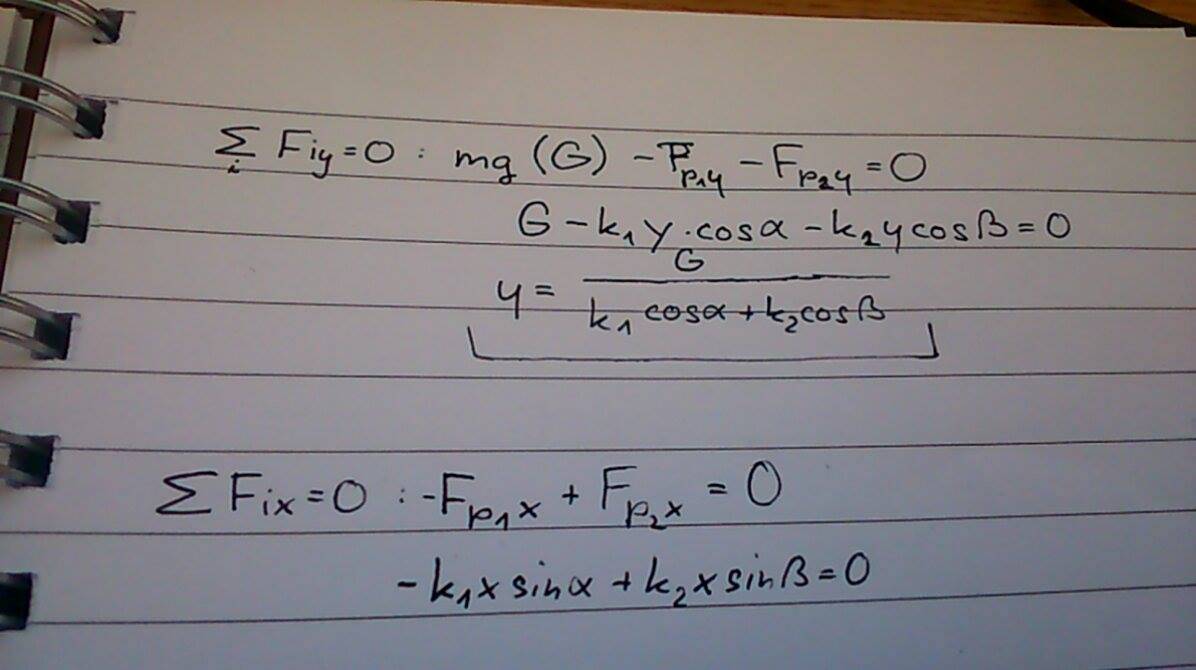 Σ_i F_iy = 0 : mg (G) - F_p₁y - F_p₂y = 0
G - k₁y · cosα - k₂y cosβ = 0
y = G / (k₁ cosα + k₂ cosβ)
Σ F_ix = 0 : -F_p₁x + F_p₂x = 0
-k₁x sinα + k₂x sinβ = 0